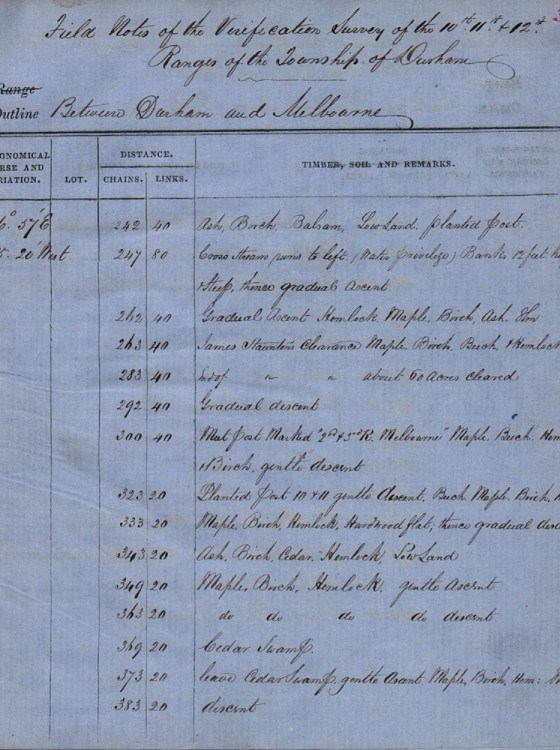 Field Notes of the Verification Survey of the 10th 11th & 12th
Ranges of the Township of Durham
Range
Outline Between Durham and Melbourne
ONOMICAL
RSE AND
RIATION.
LOT.
DISTANCE.
CHAINS. LINKS.
TIMBER, SOIL AND REMARKS.
° 37'E 242 40 Ash, Birch, Balsam, Low Land, planted Post.
20' West 247 80 Cross Stream runs to left, (Water Privelege) Banks 12 feet
steep, thence gradual ascent
262 40 Gradual Ascent Hemlock Maple, Birch, Ash, Elm
263 40 James Stauntons Clearance Maple, Birch, Beech & Hemlock
283 40 End of " " about 60 acres cleared
292 40 Gradual descent
300 40 Meet Post Marked "2nd & 3rd R. Melbourne" Maple, Beech, Hem
& Birch, gentle descent
323 20 Planted Post 10 & 11 gentle descent, Beech, Maple, Birch,
333 20 Maple, Birch, Hemlock, Hardwood flat, thence gradual
343 20 Ash, Birch, Cedar, Hemlock, Low Land
349 20 Maple, Birch, Hemlock, gentle Ascent
363 20 do do do do descent
369 20 Cedar Swamp.
373 20 leave Cedar Swamp, gentle Ascent Maple, Birch, Hem:
383 20 descent